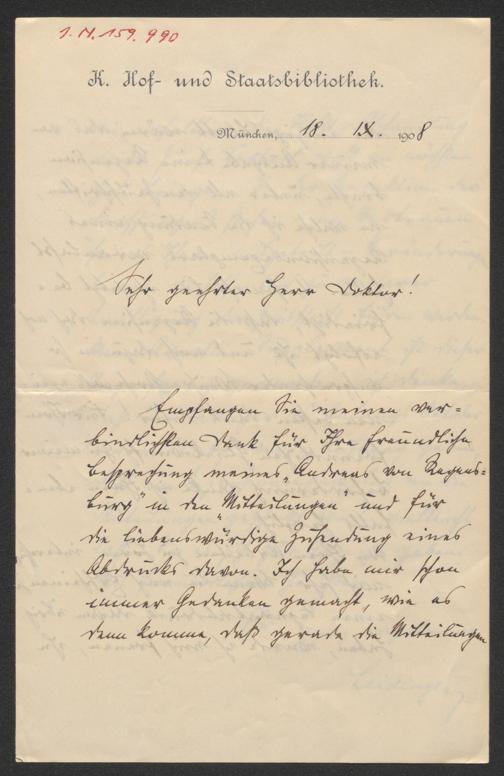 1.N.159.990
K. Hof- und Staatsbibliothek.
München, 18. IX. 1908
Sehr geehrter Herr Doktor!
Empfangen Sie meinen ver=
bindlichsten Dank für Ihre freundliche
Besprechung meines „Andreas von Regens=
burg" in den „Mitteilungen" und für
die liebenswürdige Zusendung eines
Abdrucks davon. Ich habe mir schon
immer Gedanken gemacht, wie es
denn komme, daß gerade die Mitteilungen